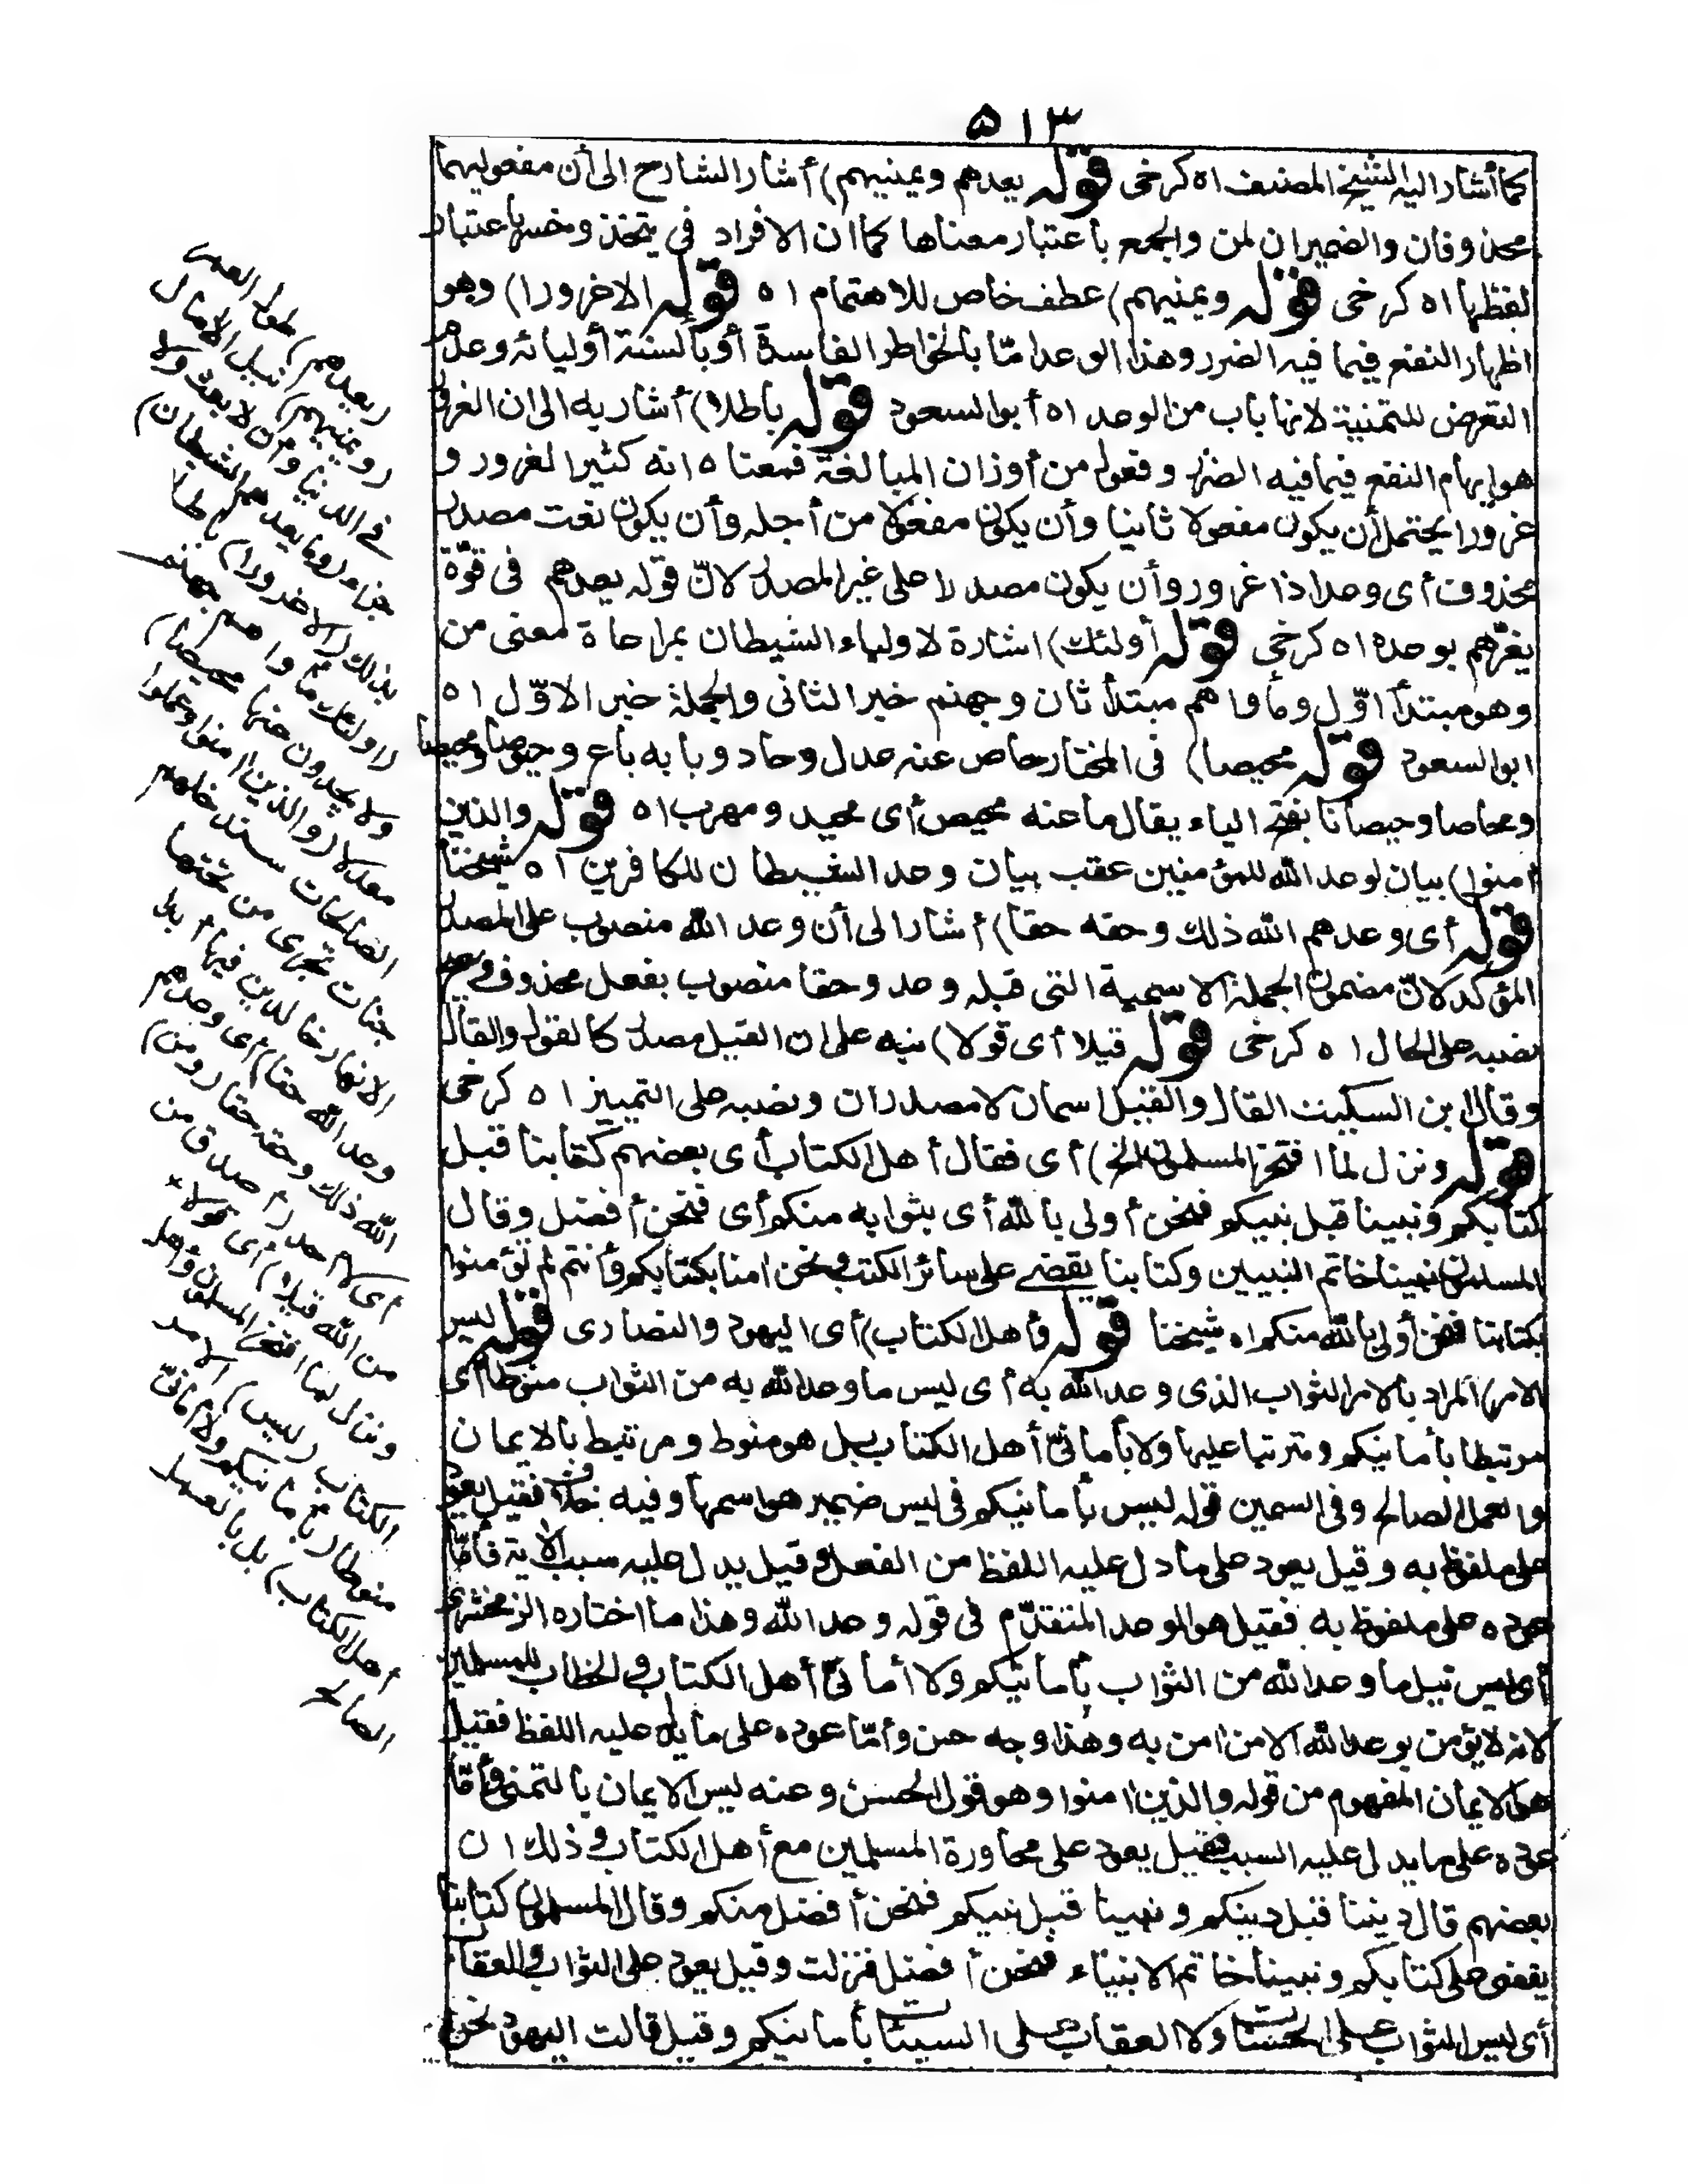 ٥١٣
كما أشار اليه الشيخ المصنف اه كرخى قوله يعدهم ويمنيهم) أشار الشارح الى أن مفعوليهما
محذوفان والضميران لمن والجمع باعتبار معناها كما ان الافراد فى يتخذ وخسر باعتبار
لفظها اه كرخى قوله ويمنيهم) عطف خاص للاهتمام اه قوله الا غرورا) وهو
اظهار النفع فيما فيه الضرر وهذا الوعد امّا بالخواطر الفاسدة أو بألسنة أوليائه وعدم
التعرض للتمنية لانها باب من الوعد اه أبو السعود قوله باطلا) أشار به الى ان الغرور
هو ايهام النفع فيما فيه الضرر وفعول من أوزان المبالغة فمعناه انه كثير الغرور و
غرورا يحتمل أن يكون مفعولا ثانيا وأن يكون مفعولا من أجله وأن يكون نعت مصدر
محذوف أى وعدا ذا غرور وأن يكون مصدرا على غير المصدر لانّ قوله يعدهم فى قوّة
يغرّهم بوعده اه كرخى قوله أولئك) اشارة لاولياء الشيطان بمراعاة لمعنى من
وهو مبتدأ اوّل ومأواهم مبتدأ ثان وجهنم خبر الثانى والجملة خبر الاوّل اه
ابو السعود قوله محيصا) فى المختار حاص عنه عدل وحاد وبابه باع وحيوصا ومحيصا
ومحاصا وحيصانا بفتح الياء يقال ما عنه محيص أى محيد ومهرب اه قوله والذين
اٰمنوا) بيان لوعد الله للمؤمنين عقب بيان وعد الشيطان للكافرين اه شيخنا
قوله أى وعدهم الله ذلك وحقه حقا) أشار الى أن وعد الله منصوب على المصدر
المؤكد لانّ مضمون الجملة الاسمية التى قبله وعد وحقا منصوب بفعل محذوف ويصح
نصبه على الحال اه كرخى قوله قيلا أى قولا) نبه على ان القيل مصدر كالقول والقال
وقال ابن السكيت القال والقيل اسمان لا مصدران ونصبه على التمييز اه كرخى
قوله ونزل لما افتخر المسلمون الخ) أى فقال أهل الكتاب أى بعضهم كتابنا قبل
كتابكم ونبينا قبل نبيكم فنحن أولى بالله أى بثوابه منكم أى فنحن أفضل وقال
المسلمون نبينا خاتم النبيين وكتابنا يقضى على سائر الكتب ونحن اٰمنا بكتابكم وأنتم لم تؤمنوا
بكتابنا فنحن أولى بالله منكم اه شيخنا قوله وأهل الكتاب) أى اليهود والنصارى قوله ليس
الامر) المراد بالامر الثواب الذى وعد الله به أى ليس ما وعد الله به من الثواب منوطا أى
مرتبطا بأمانيكم ومترتبا عليها ولا بأمانىّ أهل الكتاب بل هو منوط ومرتبط بالايمان
والعمل الصالح وفى السمين قوله ليس بأمانيكم فى ليس ضمير هو اسمها وفيه خلاف فقيل يعود
على ملفوظ به وقيل يعود على ما دل عليه اللفظ من الفعل وقيل يدل عليه سبب الاٰية فأمّا
عوده على ملفوظ به فقيل هو الوعد المتقدّم فى قوله وعد الله وهذا ما اختاره الزمخشرى
أى ليس نيل ما وعد الله من الثواب بأمانيكم ولا أمانىّ أهل الكتاب والخطاب للمسلمين
لانه لا يؤمن بوعد الله الا من اٰمن به وهذا وجه حسن وأمّا عوده على ما يدل عليه اللفظ فقيل
هو الايمان المفهوم من قوله والذين اٰمنوا وهو قول الحسن وعنه ليس الايمان بالتمنى وأمّا
عوده على ما يدل عليه السبب فقيل يعود على محاورة المسلمين مع أهل الكتاب وذلك ان
بعضهم قال ديننا قبل دينكم ونبينا قبل نبيكم فنحن أفضل منكم وقال المسلمون كتابنا
يقضى على كتابكم ونبينا خاتم الانبياء فنحن أفضل فنزلت وقيل يعود على الثواب والعقاب
أى ليس الثواب على الحسنات ولا العقاب على السيئات بأمانيكم وقيل قالت اليهود نحن
(يعدهم) طول العمر
(ويمنيهم) نيل الاٰمال
فى الدنيا وأن لا بعث ولا
جزاء (وما يعدهم الشيطان)
بذلك (الا غرورا) باطلا
(اولئك مأواهم جهنم
ولا يجدون عنها محيصا)
معدلا (والذين اٰمنوا وعملوا
الصالحات سندخلهم
جنات تجرى من تحتها
الانهار خالدين فيها أبدا
وعد الله حقا) أى وعدهم
الله ذلك وحقه حقا (ومن)
أى لا أحد (أصدق من
من الله قيلا) أى قولا*
ونزل لما افتخر المسلمون وأهل
الكتاب (ليس) الامر
منوطا (بأمانيكم ولا أمانىّ
أهل الكتاب) بل بالعمل
الصالح